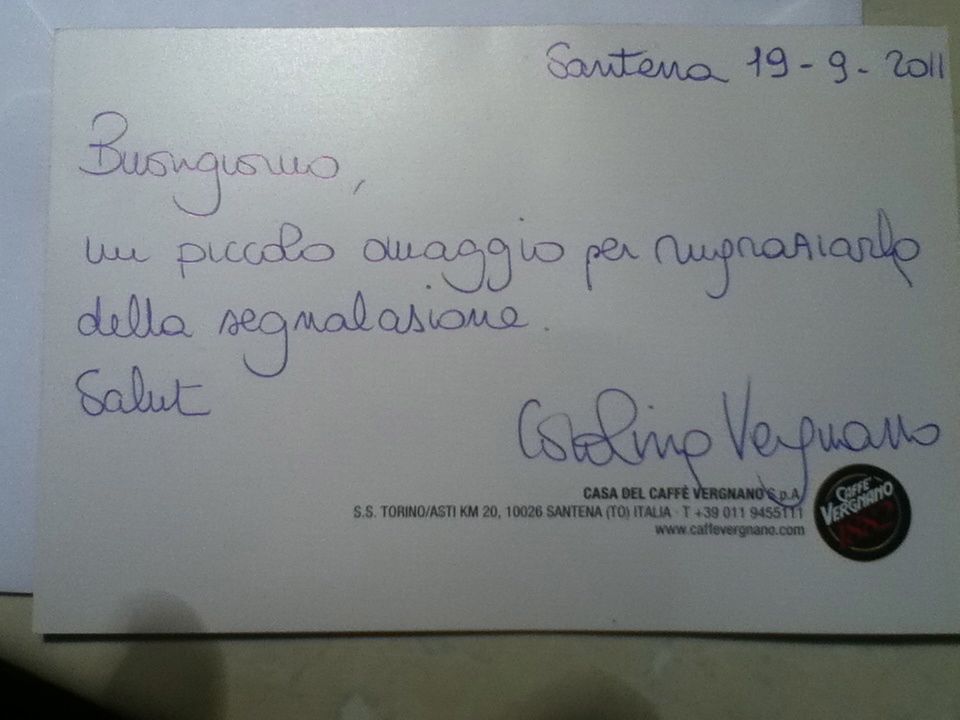 Santena 19-9-2011
Buongiorno,
un piccolo omaggio per ringraziarla
della segnalasione.
Salut
Vergnano
CASA DEL CAFFÈ VERGNANO S.p.A.
S.S. TORINO/ASTI KM 20, 10026 SANTENA (TO) ITALIA · T +39 011 9455111
www.caffevergnano.com
CAFFÈ
VERGNANO
1882